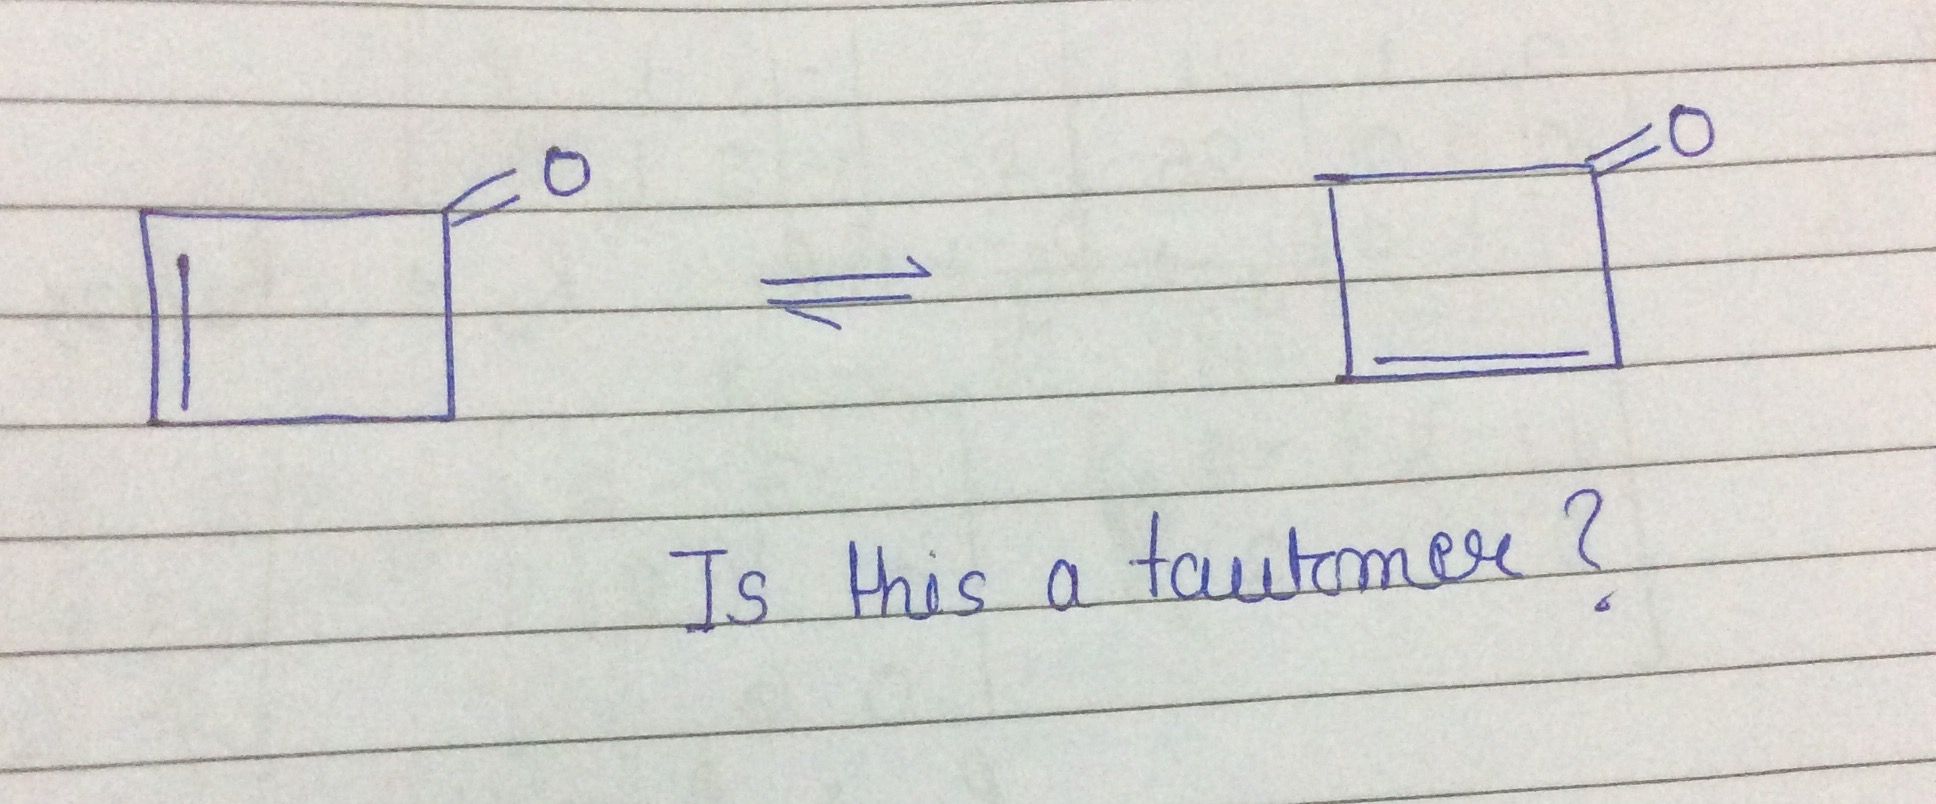 O
O
Is this a tautomer?